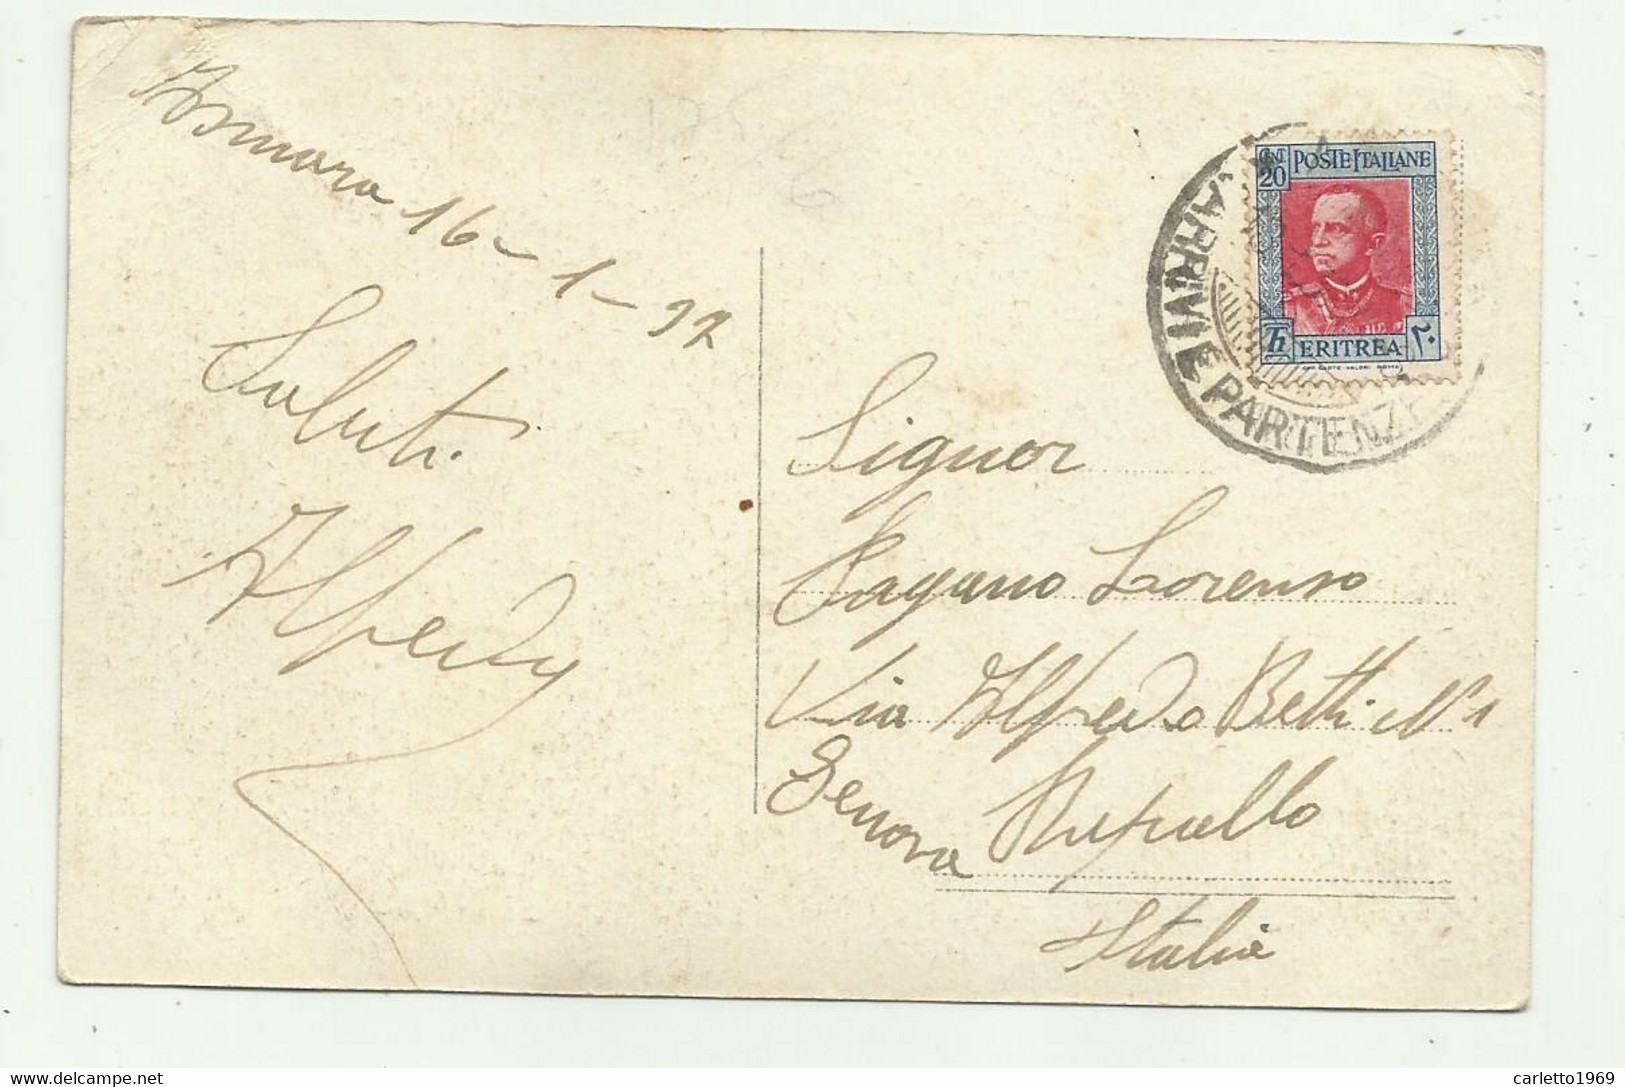 Asmara 16-1-37
Saluti
Alfredo
CENT
20
POSTE ITALIANE
ERITREA
٢٠
ARRIVI E PARTENZE
Signor
Pagano Lorenzo
Via Alfredo Betti N° 1
Genova Rapallo
Italia
carletto1969